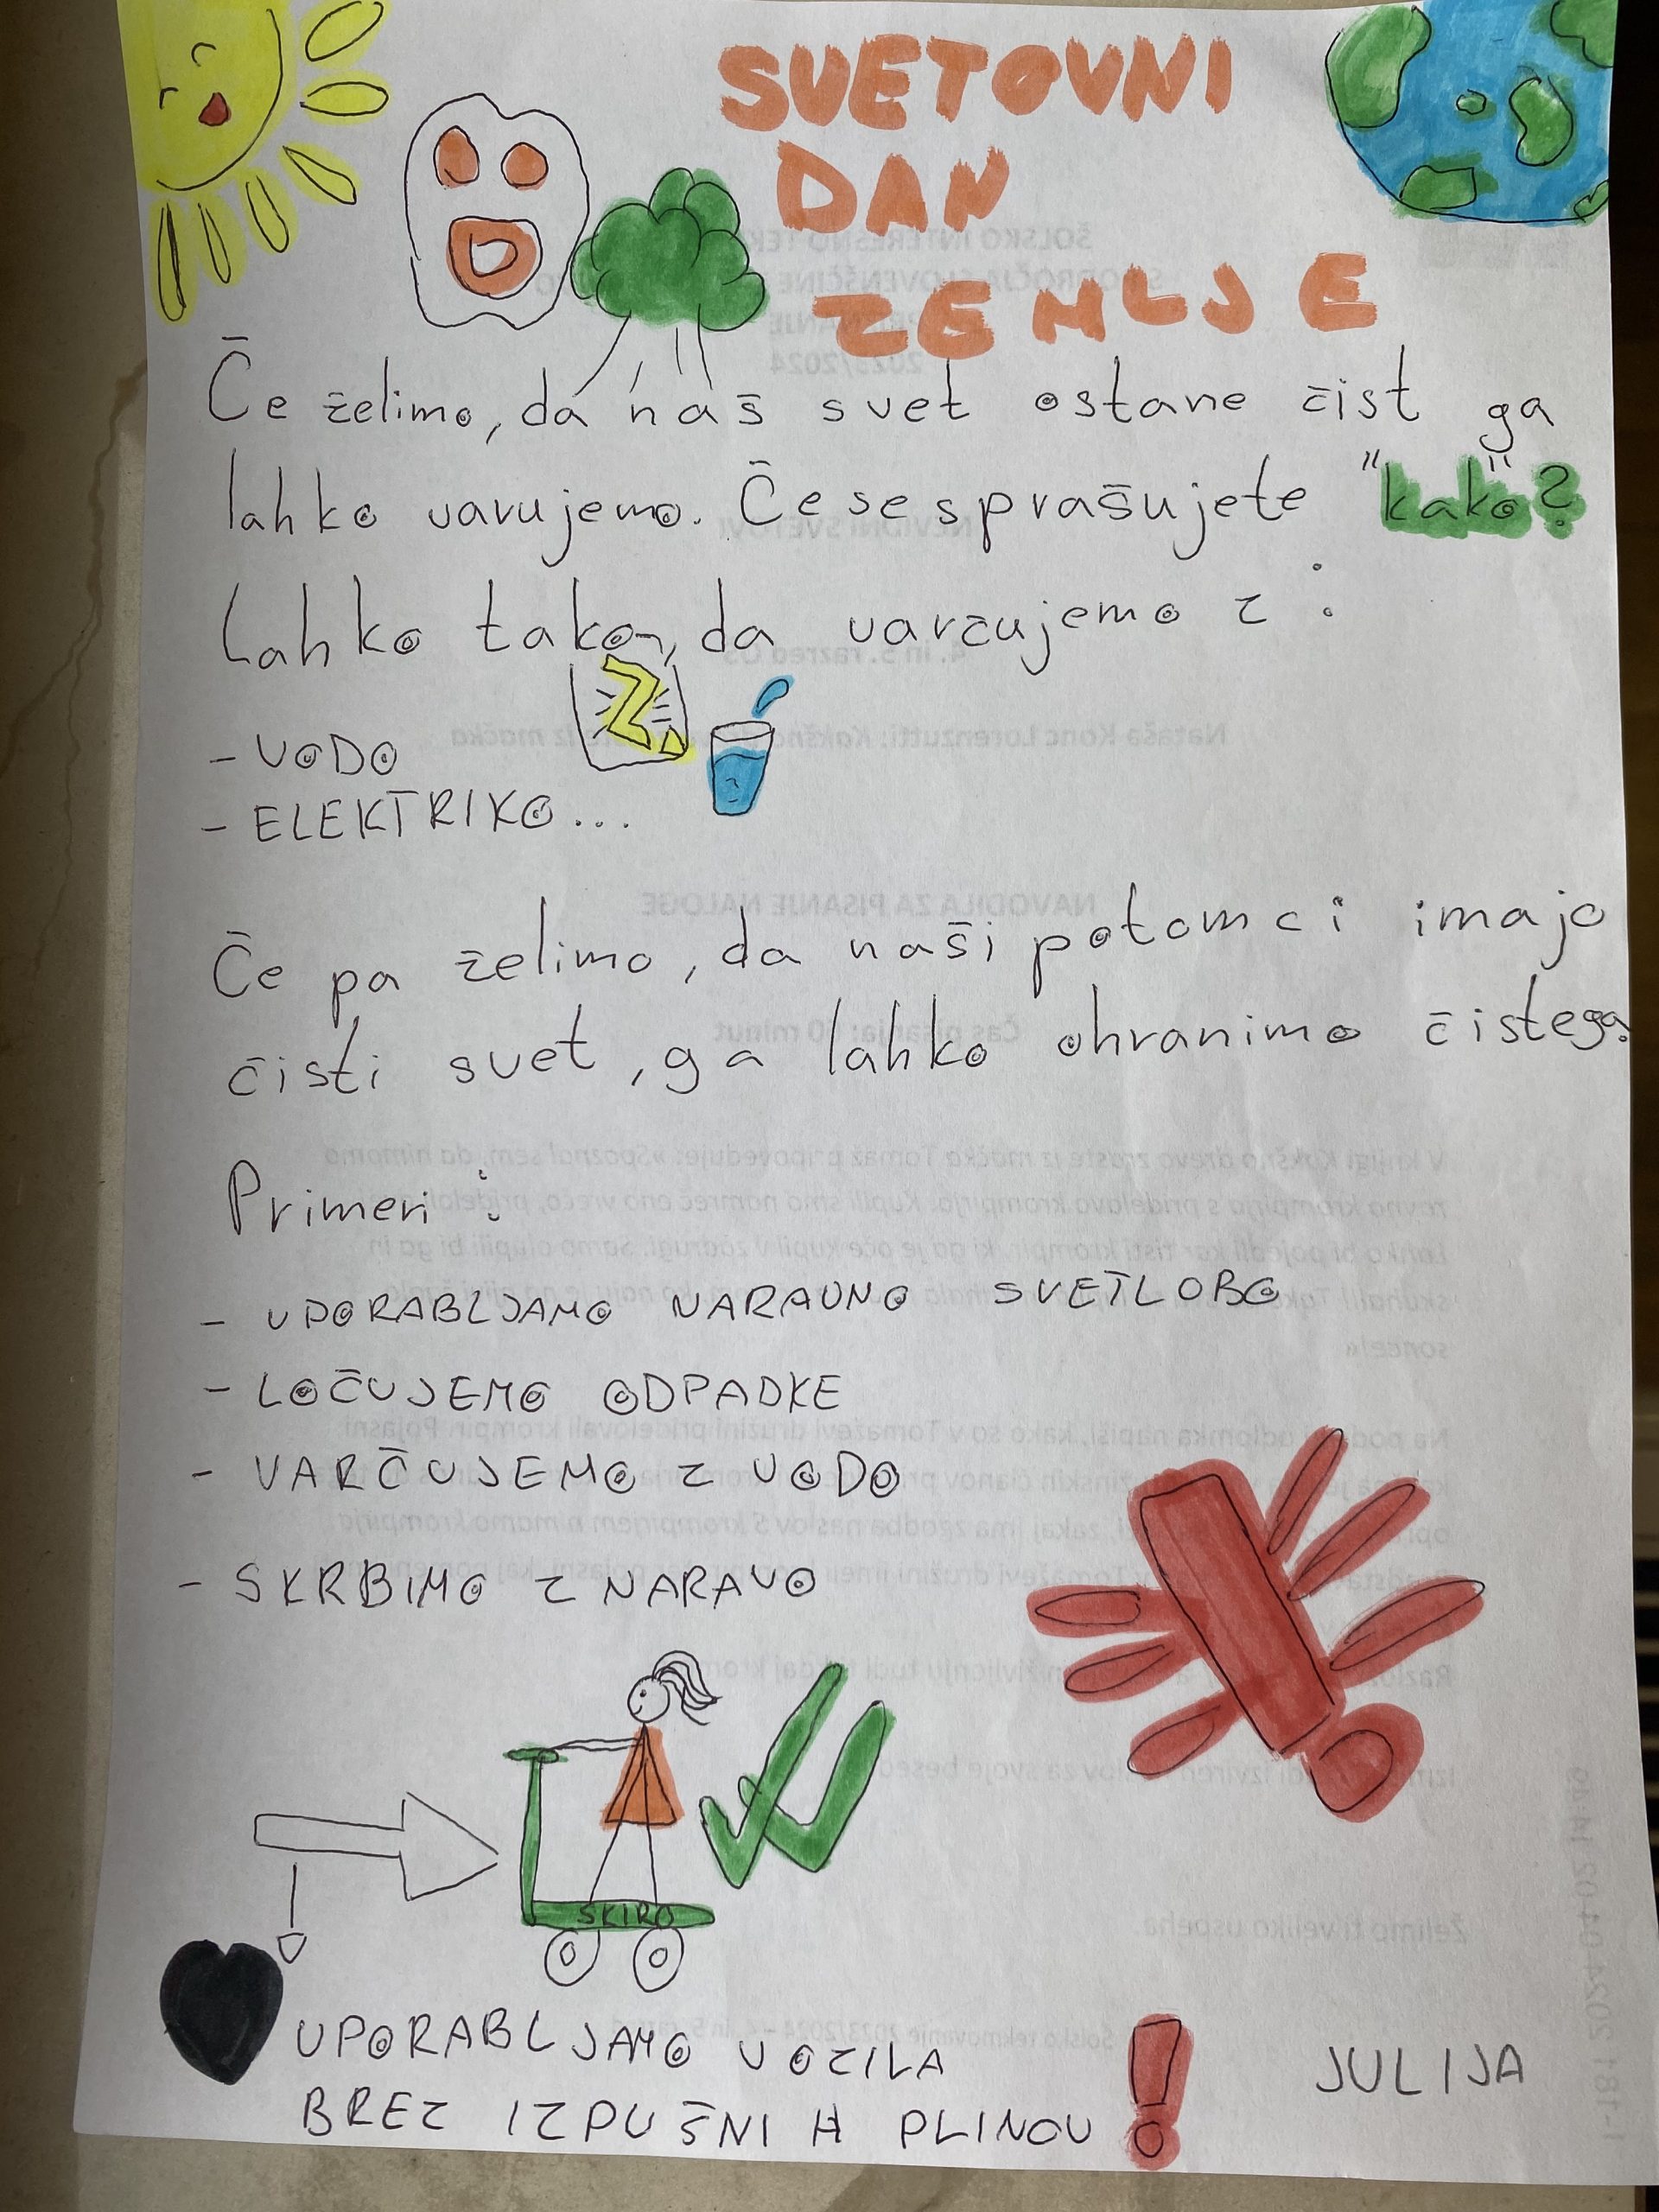 SVETOVNI
DAN
ZEMLJE
Če želimo, da naš svet ostane čist ga
lahko varujemo. Če se sprašujete "kako"?
Lahko tako, da varčujemo z:
- VODO
- ELEKTRIKO...
Če pa želimo, da naši potomci imajo
čisti svet, ga lahko ohranimo čistega.
Primeri:
- UPORABLJAMO NARAVNO SVETLOBO
- LOČUJEMO ODPADKE
- VARČUJEMO Z VODO
- SKRBIMO Z NARAVO
SKIRO
UPORABLJAMO VOZILA
BREZ IZPUŠNIH PLINOV!
JULIJA